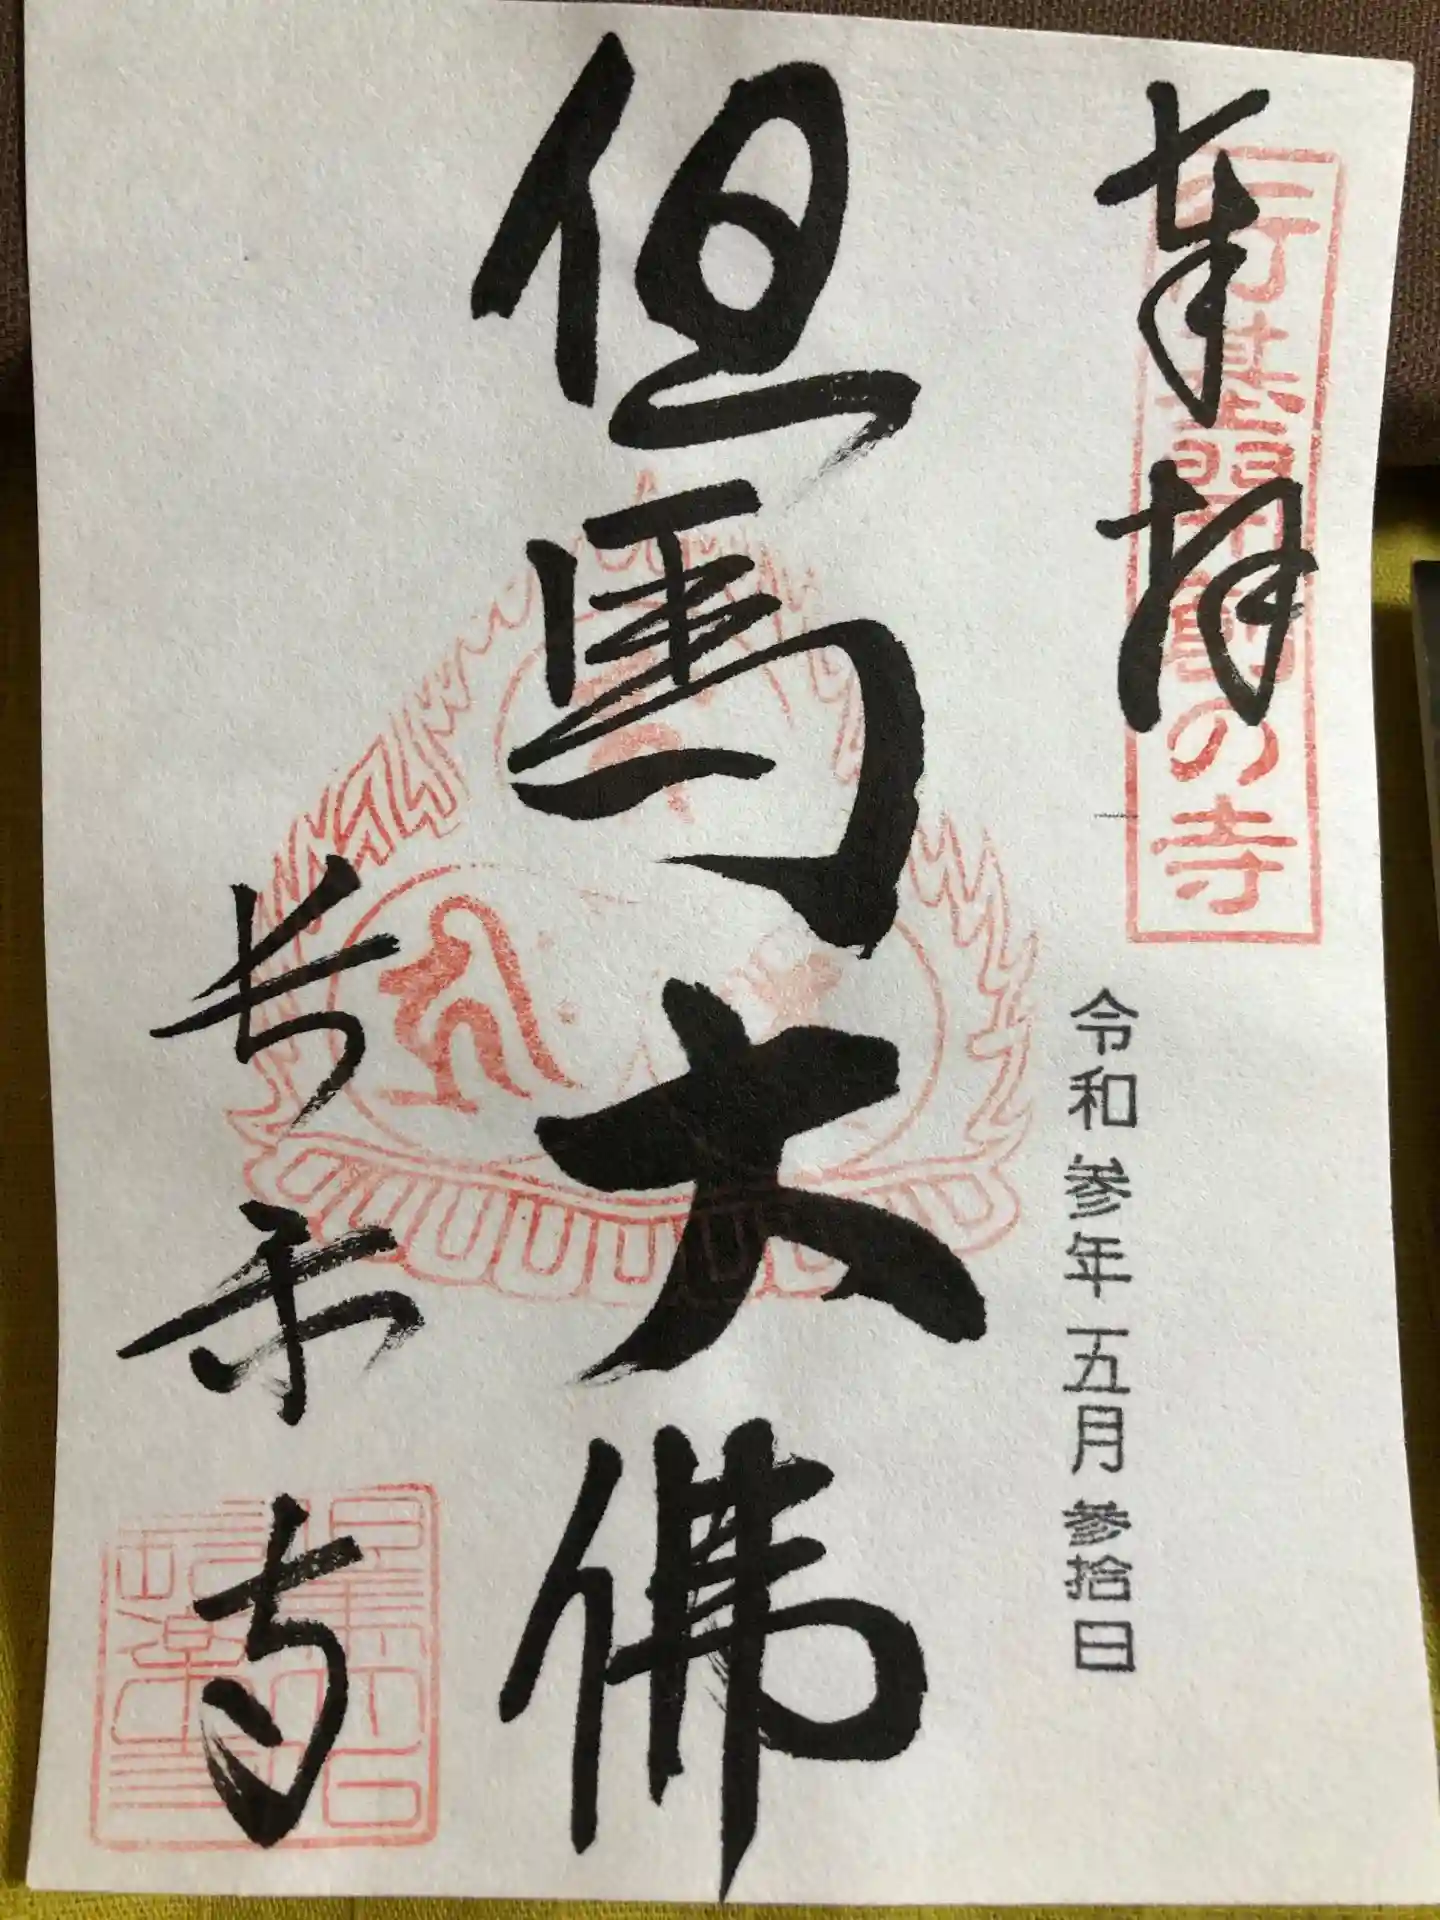 奉拝
行基開創の寺
令和参年五月参拾日
但馬大佛
長楽寺